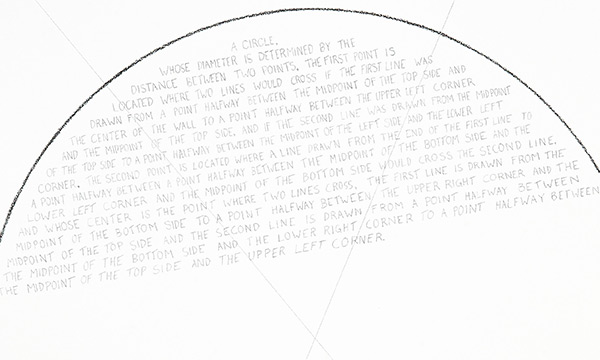 A CIRCLE,
WHOSE DIAMETER IS DETERMINED BY THE
DISTANCE BETWEEN TWO POINTS. THE FIRST POINT IS
LOCATED WHERE TWO LINES WOULD CROSS IF THE FIRST LINE WAS
DRAWN FROM A POINT HALFWAY BETWEEN THE MIDPOINT OF THE TOP SIDE AND
THE CENTER OF THE WALL TO A POINT HALFWAY BETWEEN THE UPPER LEFT CORNER
AND THE MIDPOINT OF THE TOP SIDE, AND IF THE SECOND LINE WAS DRAWN FROM THE MIDPOINT
OF THE TOP SIDE TO A POINT HALFWAY BETWEEN THE MIDPOINT OF THE LEFT SIDE AND THE LOWER LEFT
CORNER. THE SECOND POINT IS LOCATED WHERE A LINE DRAWN FROM THE END OF THE FIRST LINE TO
A POINT HALFWAY BETWEEN A POINT HALFWAY BETWEEN THE MIDPOINT OF THE BOTTOM SIDE AND THE
LOWER LEFT CORNER AND THE MIDPOINT OF THE BOTTOM SIDE WOULD CROSS THE SECOND LINE,
AND WHOSE CENTER IS THE POINT WHERE TWO LINES CROSS. THE FIRST LINE IS DRAWN FROM THE
MIDPOINT OF THE BOTTOM SIDE TO A POINT HALFWAY BETWEEN THE UPPER RIGHT CORNER AND THE
MIDPOINT OF THE TOP SIDE AND THE SECOND LINE IS DRAWN FROM A POINT HALFWAY BETWEEN
THE MIDPOINT OF THE BOTTOM SIDE AND THE LOWER RIGHT CORNER TO A POINT HALFWAY BETWEEN
THE MIDPOINT OF THE TOP SIDE AND THE UPPER LEFT CORNER.